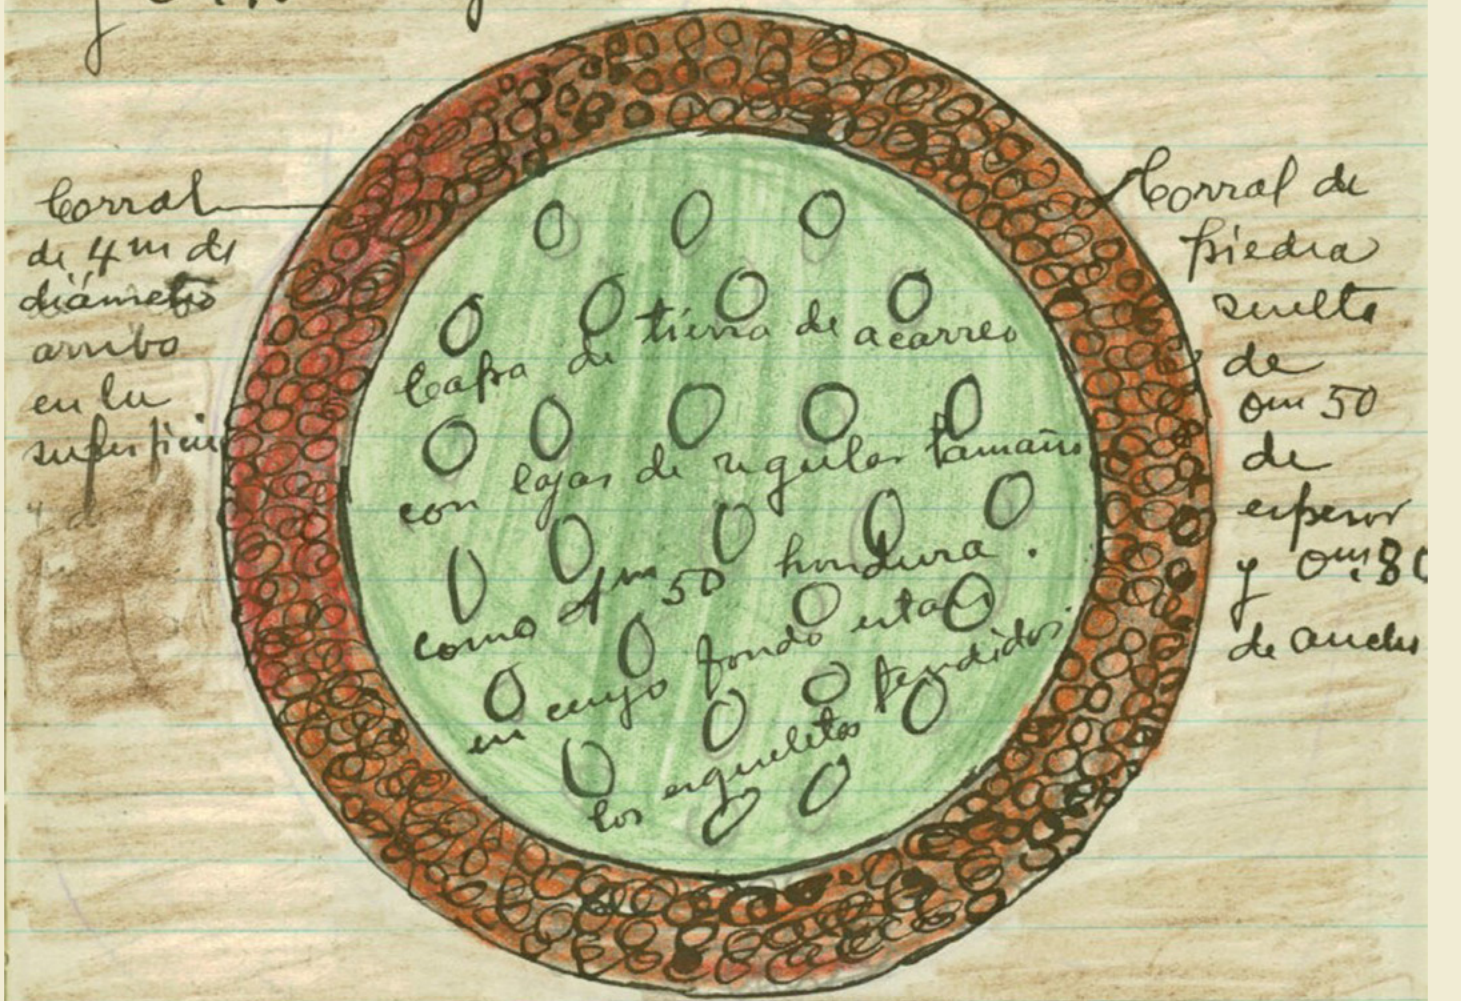 Corral
de 4m de
diámetro
arriba
en la
superficie
Capa de tierra de acarreo
con lajas de regular tamaño
como 4m 50 hondura.
en cuyo fondo estan
los esqueletos tendidos.
Corral de
piedra
suelta
de
0m 50
de
espesor
y 0m.80
de ancho